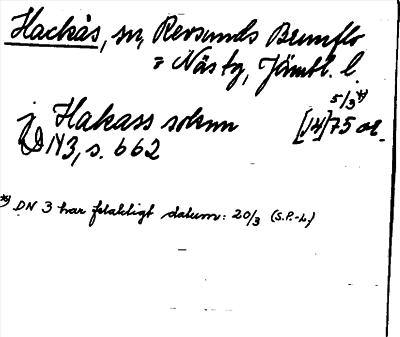 Hackås, sn, Revsunds Brunflo
o Näs tg, Jämtl. l.
5/3 *)
j Hakass soknn [14]75 or.
DN3, s. 662
*) DN 3 har felaktigt datum: 20/3 (S.P.-L.)